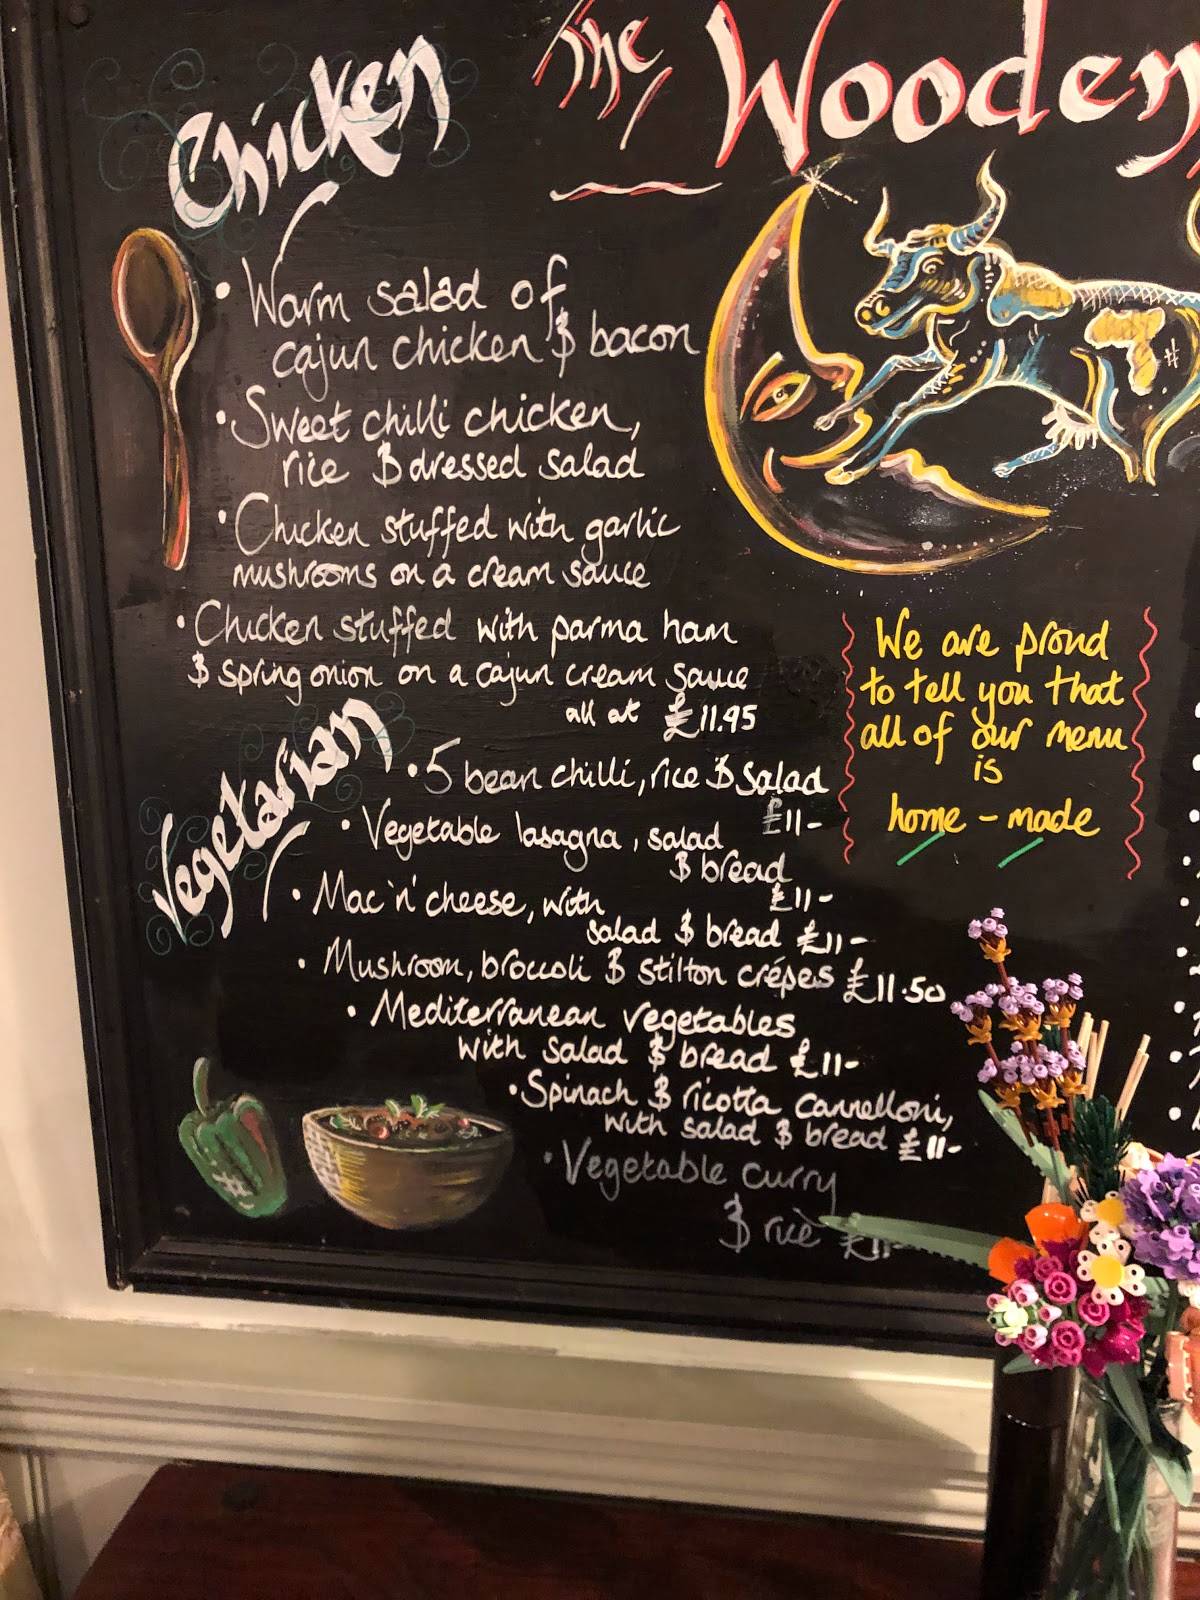 The Wooden
Chicken
• Warm salad of
cajun chicken & bacon
• Sweet chilli chicken,
rice & dressed salad
• Chicken stuffed with garlic
mushrooms on a cream sauce
• Chicken stuffed with parma ham
& spring onion on a cajun cream sauce
all at £11.95
Vegetarian
• 5 bean chilli, rice & salad
£11-
• Vegetable lasagna, salad
& bread
£11-
• Mac 'n' cheese, with
salad & bread £11-
• Mushroom, broccoli & stilton crépes £11.50
• Mediterranean vegetables
with salad & bread £11-
• Spinach & ricotta cannelloni,
with salad & bread £11-
• Vegetable curry
& rice £11-
We are proud
to tell you that
all of our menu
is
home-made